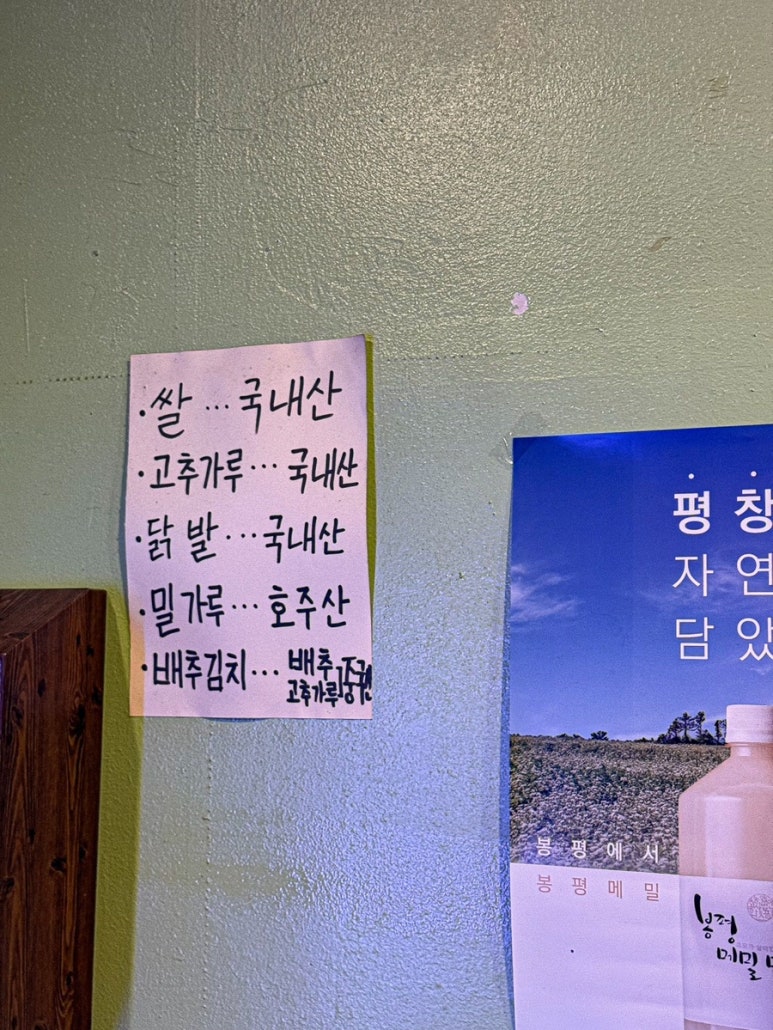 ·쌀 ... 국내산
·고추가루 ... 국내산
·닭발 ... 국내산
·밀가루 ... 호주산
·배추김치 ... 배추
고추가루
평창
자연
담았
봉평에서
봉평메밀
봉평
메밀